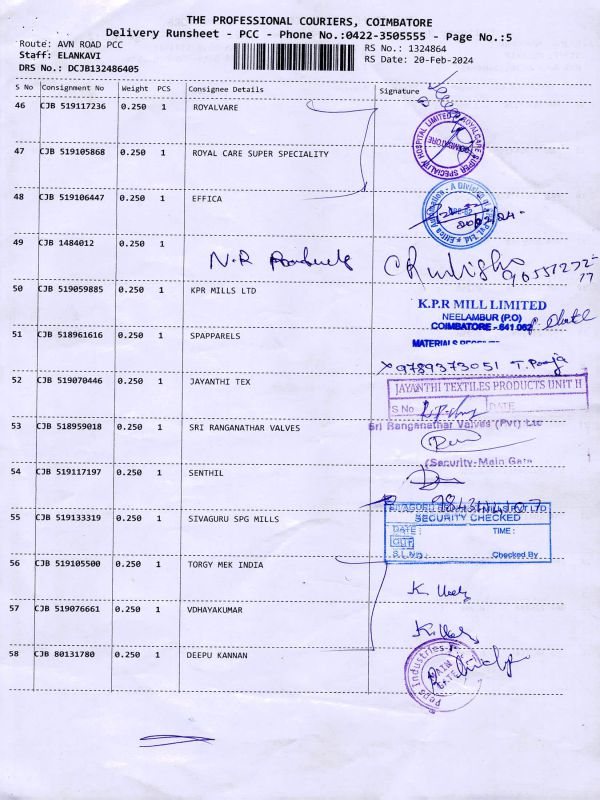 THE PROFESSIONAL COURIERS, COIMBATORE
Delivery Runsheet - PCC - Phone No.:0422-3505555 - Page No.:5
Route: AVN ROAD PCC
Staff: ELANKAVI
DRS No.: DCJB132486405
RS No.: 1324864
RS Date: 20-Feb-2024
S No Consignment No Weight PCS Consignee Details Signature
46 CJB 519117236 0.250 1 ROYALVARE
47 CJB 519105868 0.250 1 ROYAL CARE SUPER SPECIALITY
ROYALCARE SUPER SPECIALITY HOSPITAL LIMITED
COIMBATORE
48 CJB 519106447 0.250 1 EFFICA
49 CJB 1484012 0.250 1
N.R Products
50 CJB 519059885 0.250 1 KPR MILLS LTD
K.P.R MILL LIMITED
NEELAMBUR (P.O)
COIMBATORE - 641 062
51 CJB 518961616 0.250 1 SPAPPARELS
MATERIALS
9789373051 T. Pooja
52 CJB 519070446 0.250 1 JAYANTHI TEX
JAYANTHI TEXTILES PRODUCTS UNIT II
S No DATE
53 CJB 518959018 0.250 1 SRI RANGANATHAR VALVES
Sri Ranganathar Valves (Pvt) Ltd
(Security-Main Gate
54 CJB 519117197 0.250 1 SENTHIL
55 CJB 519133319 0.250 1 SIVAGURU SPG MILLS
SECURITY CHECKED
DATE: TIME:
OUT
S.L.No. Checked By
56 CJB 519105500 0.250 1 TORGY MEK INDIA
57 CJB 519076661 0.250 1 VDHAYAKUMAR
58 CJB 80131780 0.250 1 DEEPU KANNAN
Industries
MAIN GATE